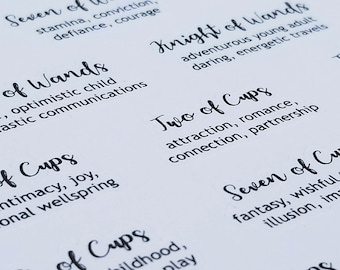 Seven of W
stamina, conviction,
defiance, courage
Knight of Wands
adventurous young adult
daring, energetic travels
of Wands
optimistic child
astic communications
Two of Cups
attraction, romance,
connection, partnership
of Cups
intimacy, joy,
onal wellspring
Seven of Cup
fantasy, wishful
illusion, ima
of Cups
ildhood,
play